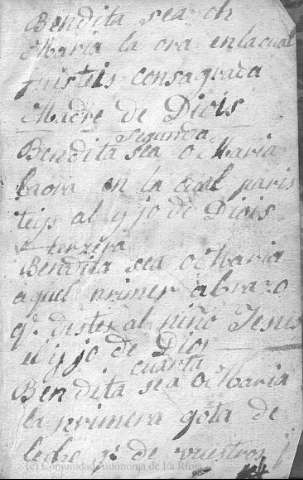 Bendita sea oh
Maria la ora en la cual
fuisteis consagrada
Madre de Diois
segunda
Bendita sea o Maria
la ora en la cual paris
teijs al yjo de Diois
terzera
Bendita sea o Maria
aquel primer abrazo
q.e disteis al niño Jesus
el yjo de Dios
cuarta
Bendita sea o Maria
la primera gota de
leche q.e de vuestros
(c) Comunidad Autónoma de La Rioja